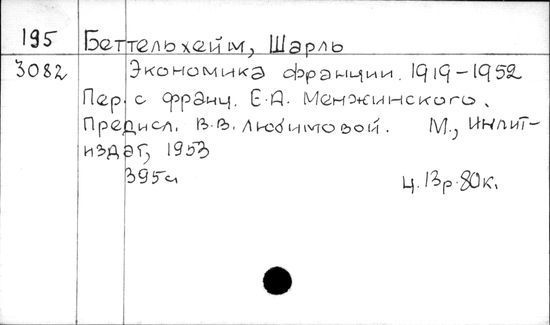 195 Беттельхейм, Шарль
3082 Экономика франции. 1919-1952
Пер. с франц. Е.А. Менжинского.
Предисл. В.В. Любимовой. М., Инлит-
издат, 1953
395с
ц. 13р. 80к.